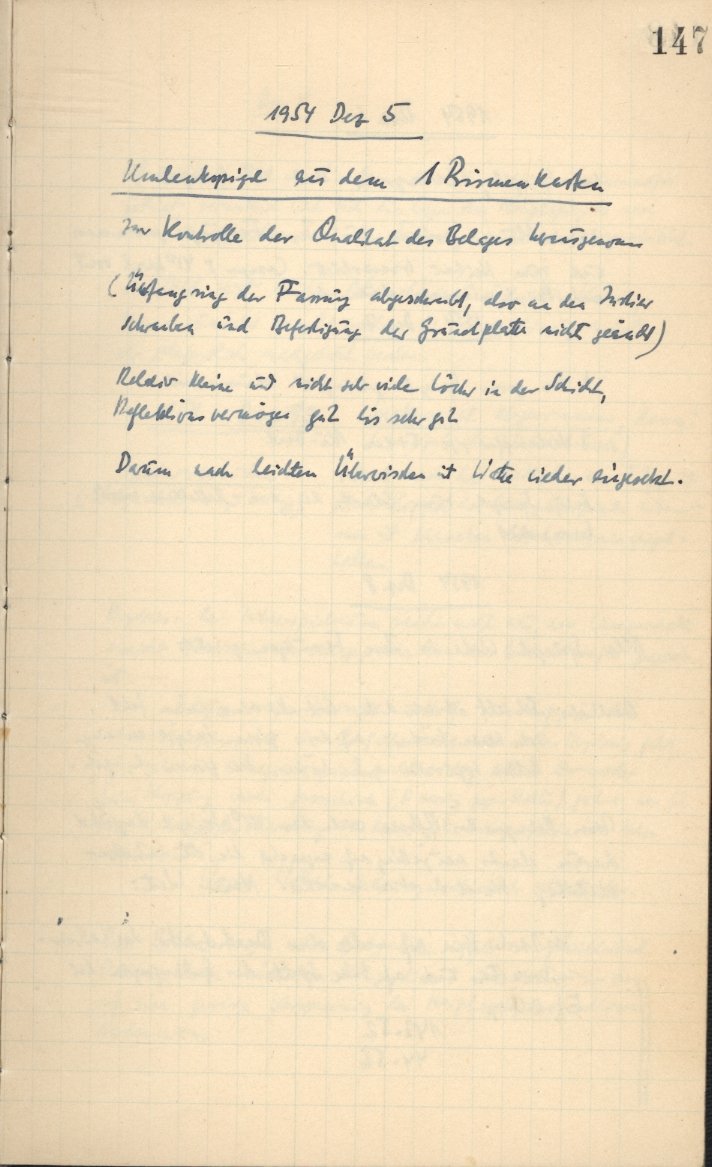 147
1954 Dez 5
Umlenkspiegel aus dem 1 Prismenkasten
Zur Kontrolle der Qualität des Belages herausgenommen
( der Fassung abgeschraubt, aber an den Justier
schrauben und Befestigung der Grundplatte nicht gerührt)
Relativ kleine und nicht sehr viele Löcher in der Schicht,
Reflektionsvermögen gut bis sehr gut
Darum nach leichten Überwischen mit Watte wieder eingesetzt.